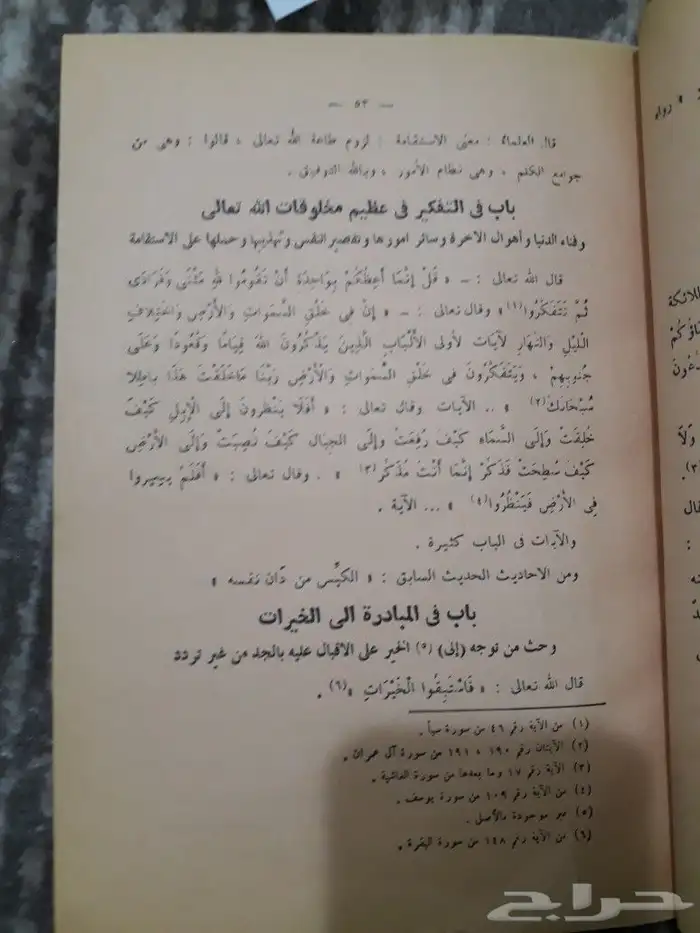 — ٥٣ —
قال العلماء : معنى الاستقامة : لزوم طاعة الله تعالى ، قالوا : وهي من
جوامع الكلم ، وهي نظام الأمور ، وبالله التوفيق .
باب في التفكير في عظيم مخلوقات الله تعالى
وفناء الدنيا وأهوال الآخرة وسائر امورها وتقصير النفس وتهذيبها وحملها على الاستقامة
قال الله تعالى : ــ « قُلْ إِنَّمَا أَعِظُكُمْ بِوَاحِدَةٍ أَنْ تَقُومُوا لِلهِ مَثْنَى وَفُرَادَى
ثُمَّ تَتَفَكَّرُوا(١)» وقال تعالى : ــ « إِنَّ فِى خَلْقِ السَّمَوَاتِ وَالْأَرْضِ وَاخْتِلَافِ
اللَّيْلِ وَالنَّهَارِ لَآيَاتٍ لِأُولِى الْأَلْبَابِ الَّذِينَ يَذْكُرُونَ اللهَ قِيَامًا وَقُعُودًا وَعَلَى
جُنُوبِهِمْ ، وَيَتَفَكَّرُونَ فِى خَلْقِ السَّمَوَاتِ وَالْأَرْضِ رَبَّنَا مَاخَلَقْتَ هَذَا بَاطِلًا
سُبْحَانَكَ(٢) » .. الآيات وقال تعالى : « أَفَلَا يَنْظُرُونَ إِلَى الْإِبِلِ كَيْفَ
خُلِقَتْ وَإِلَى السَّمَاءِ كَيْفَ رُفِعَتْ وَإِلَى الْجِبَالِ كَيْفَ نُصِبَتْ وَإِلَى الْأَرْضِ
كَيْفَ سُطِحَتْ فَذَكِّرْ إِنَّمَا أَنْتَ مُذَكِّرٌ(٣) » . وقال تعالى : « أَفَلَمْ يَسِيرُوا
فِى الْأَرْضِ فَيَنْظُرُوا(٤) » ... الآية .
والآيات فى الباب كثيرة .
ومن الاحاديث الحديث السابق : « الكَيِّس من دَان نفسه »
باب في المبادرة الى الخيرات
وحث من توجه (إلى) (٥) الخير على الاقبال عليه بالجد من غير تردد
قال الله تعالى : « فَاسْتَبِقُوا الْخَيْرَاتِ »(٦) .
(١) من الآية رقم ٤٦ من سورة سبأ .
(٢) الآيتان رقم ١٩٠ ، ١٩١ من سورة آل عمران .
(٣) الآية رقم ١٧ وما بعدها من سورة الغاشية .
(٤) من الآية رقم ١٠٩ من سورة يوسف .
(٥) غير موجودة بالأصل .
(٦) من الآية رقم ١٤٨ من سورة البقرة .
« رواه
حراج